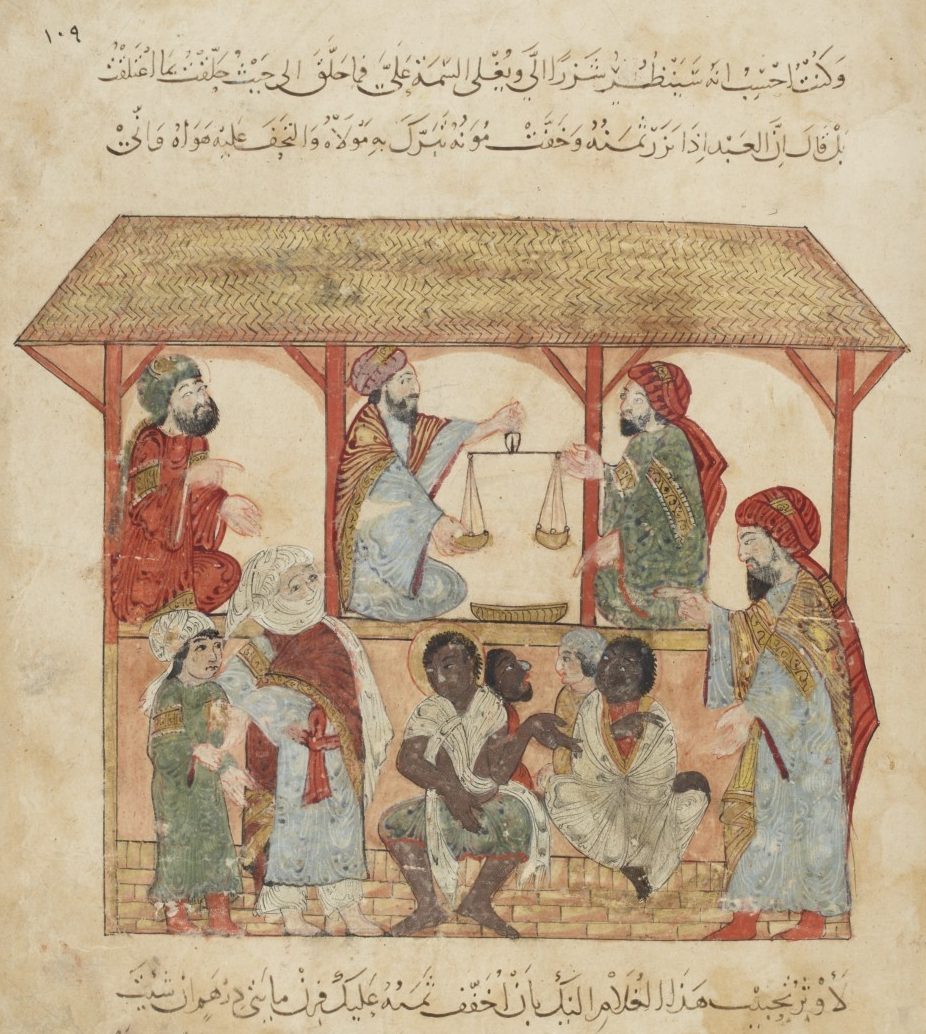 ١٠٩
وكنت احسب انه سينظر شزرا الي ويغلي السيمة علي فما حلق الى حيث حلقت بما اعتلقت
بل قال ان العبد اذا نزر ثمنه وخفت مونه تبرك به مولاه والتحف عليه هواه واني
لاوثر تحبيب هذا الغلام اليك بان اخفف ثمنه عليك فزن مايتي درهم ان شيت